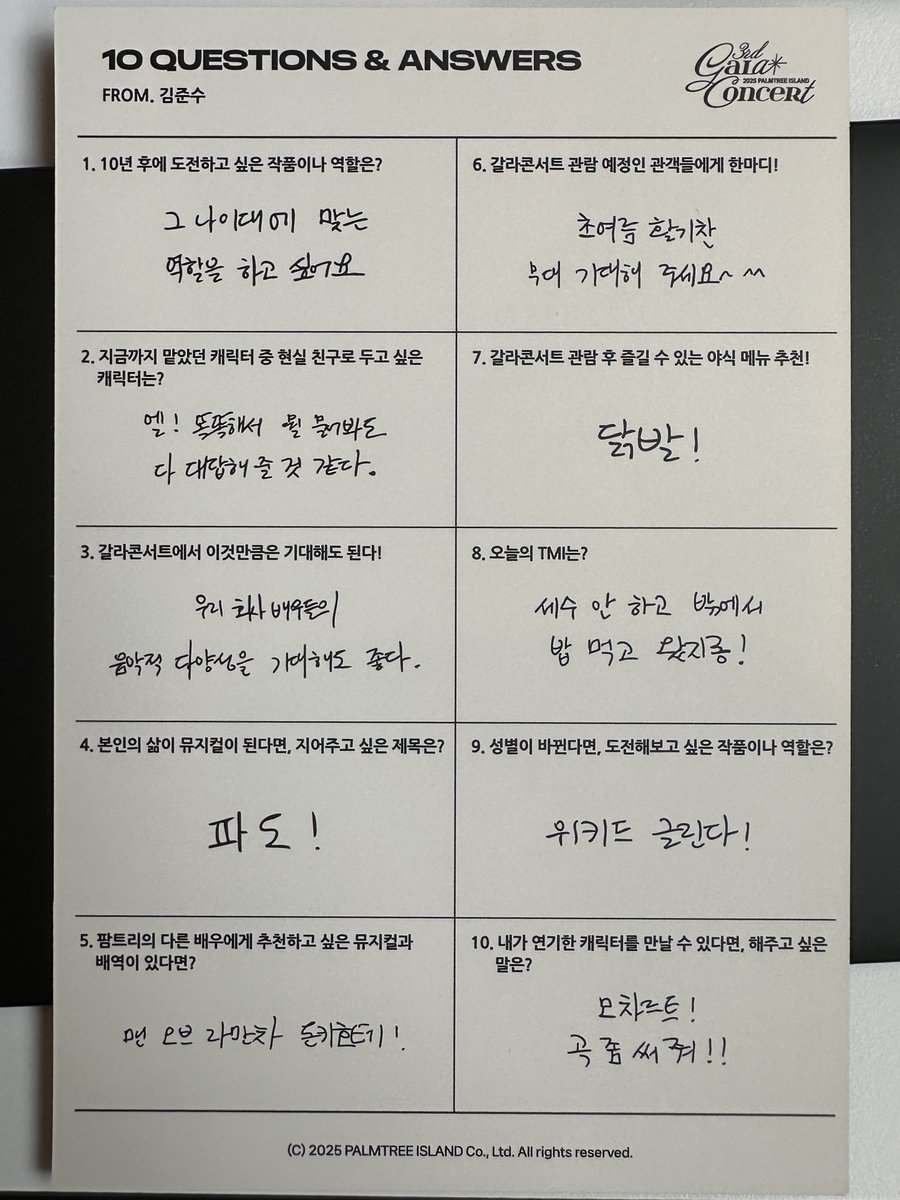 10 QUESTIONS & ANSWERS
FROM. 김준수
3rd
Gala
2025 PALMTREE ISLAND
Concert
1. 10년 후에 도전하고 싶은 작품이나 역할은?
그 나이대에 맞는
역할을 하고 싶어요
2. 지금까지 맡았던 캐릭터 중 현실 친구로 두고 싶은
캐릭터는?
엘! 똑똑해서 뭘 물어봐도
다 대답해 줄 것 같다.
3. 갈라콘서트에서 이것만큼은 기대해도 된다!
우리 회사 배우들의
음악적 다양성을 기대해도 좋다.
4. 본인의 삶이 뮤지컬이 된다면, 지어주고 싶은 제목은?
파도!
5. 팜트리의 다른 배우에게 추천하고 싶은 뮤지컬과
배역이 있다면?
맨 오브 라만차 돈키호테!
6. 갈라콘서트 관람 예정인 관객들에게 한마디!
초여름 활기찬
무대 기대해 주세요~ ^^
7. 갈라콘서트 관람 후 즐길 수 있는 야식 메뉴 추천!
닭발!
8. 오늘의 TMI는?
세수 안 하고 밖에서
밥 먹고 왔지롱!
9. 성별이 바뀐다면, 도전해보고 싶은 작품이나 역할은?
위키드 글린다!
10. 내가 연기한 캐릭터를 만날 수 있다면, 해주고 싶은
말은?
모차르트!
곡 좀 써 줘!!
(C) 2025 PALMTREE ISLAND Co., Ltd. All rights reserved.